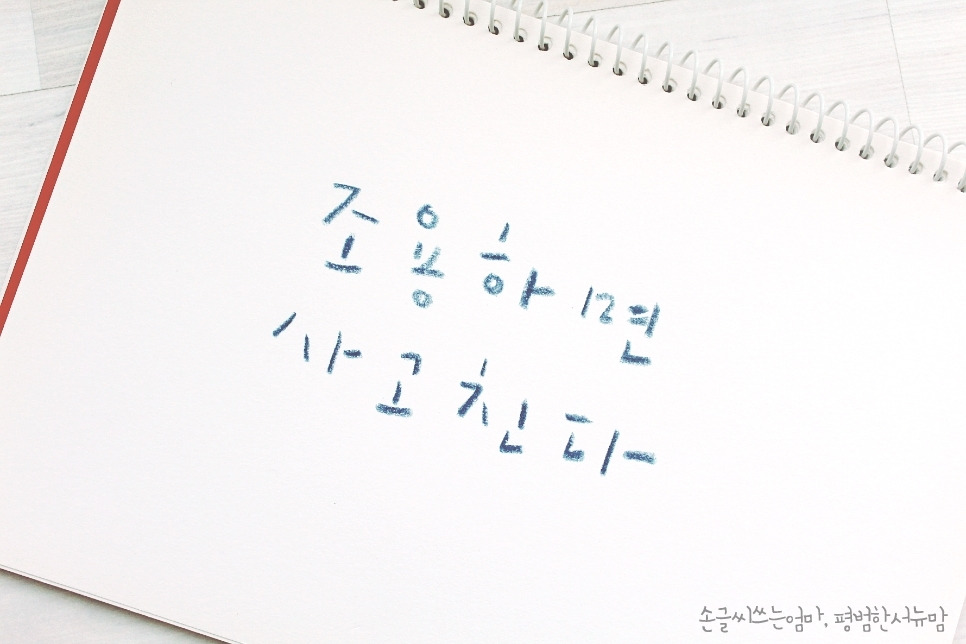 조용하면
사고친다
손글씨쓰는엄마, 평범한서뉴맘